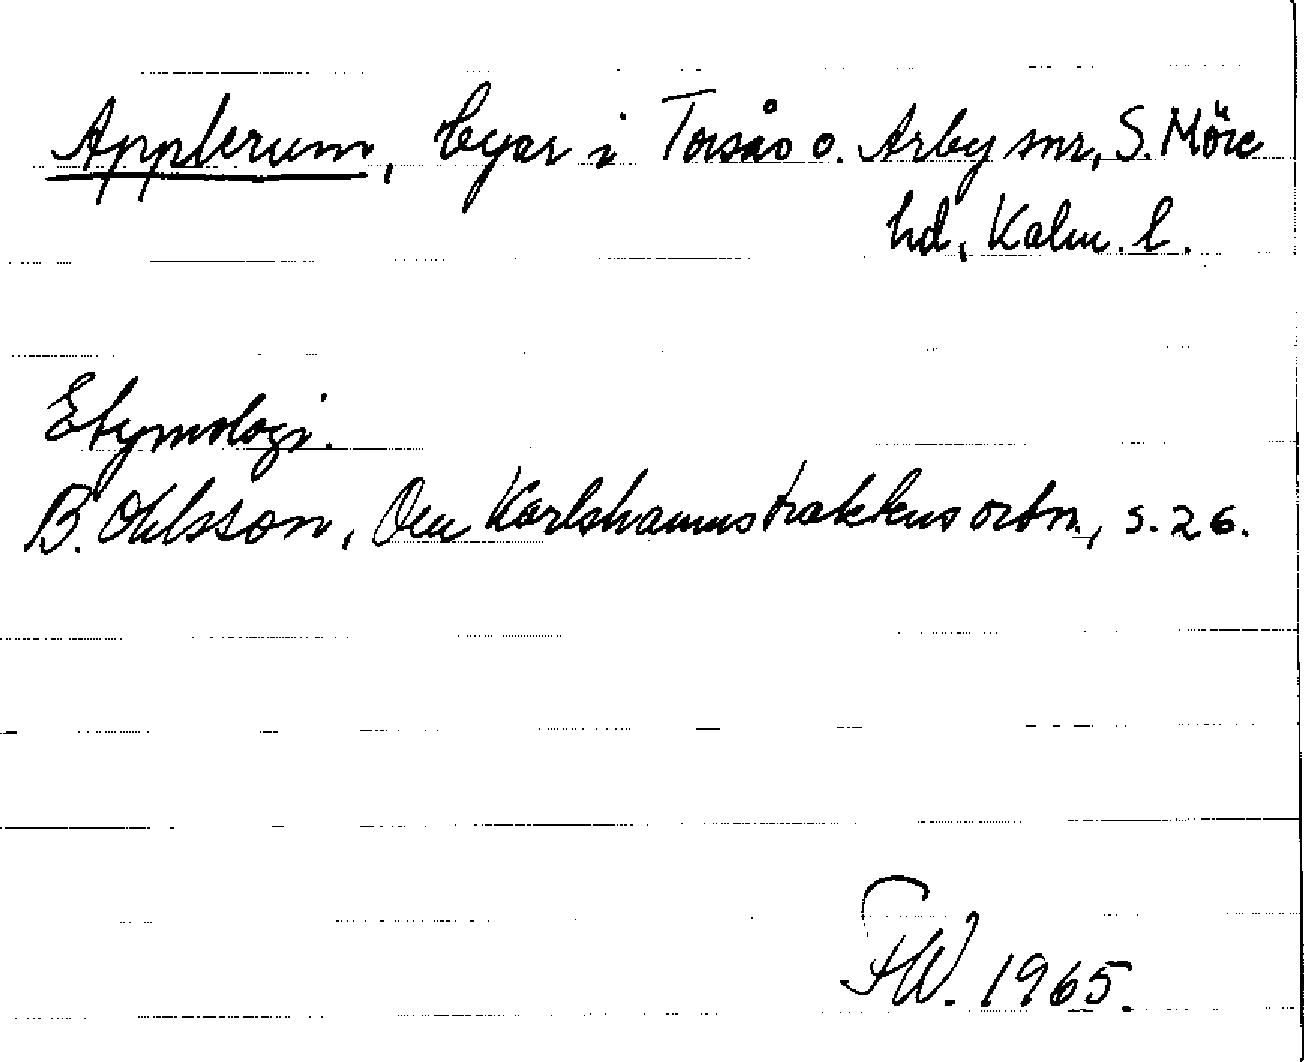 Applerum, byar i Torsås o. Arby snr, S. Möre
hd, Kalm. l.
Etymologi.
B. Ohlsson, Den Karlshamnstraktens ortn., s. 26.
FW. 1965.